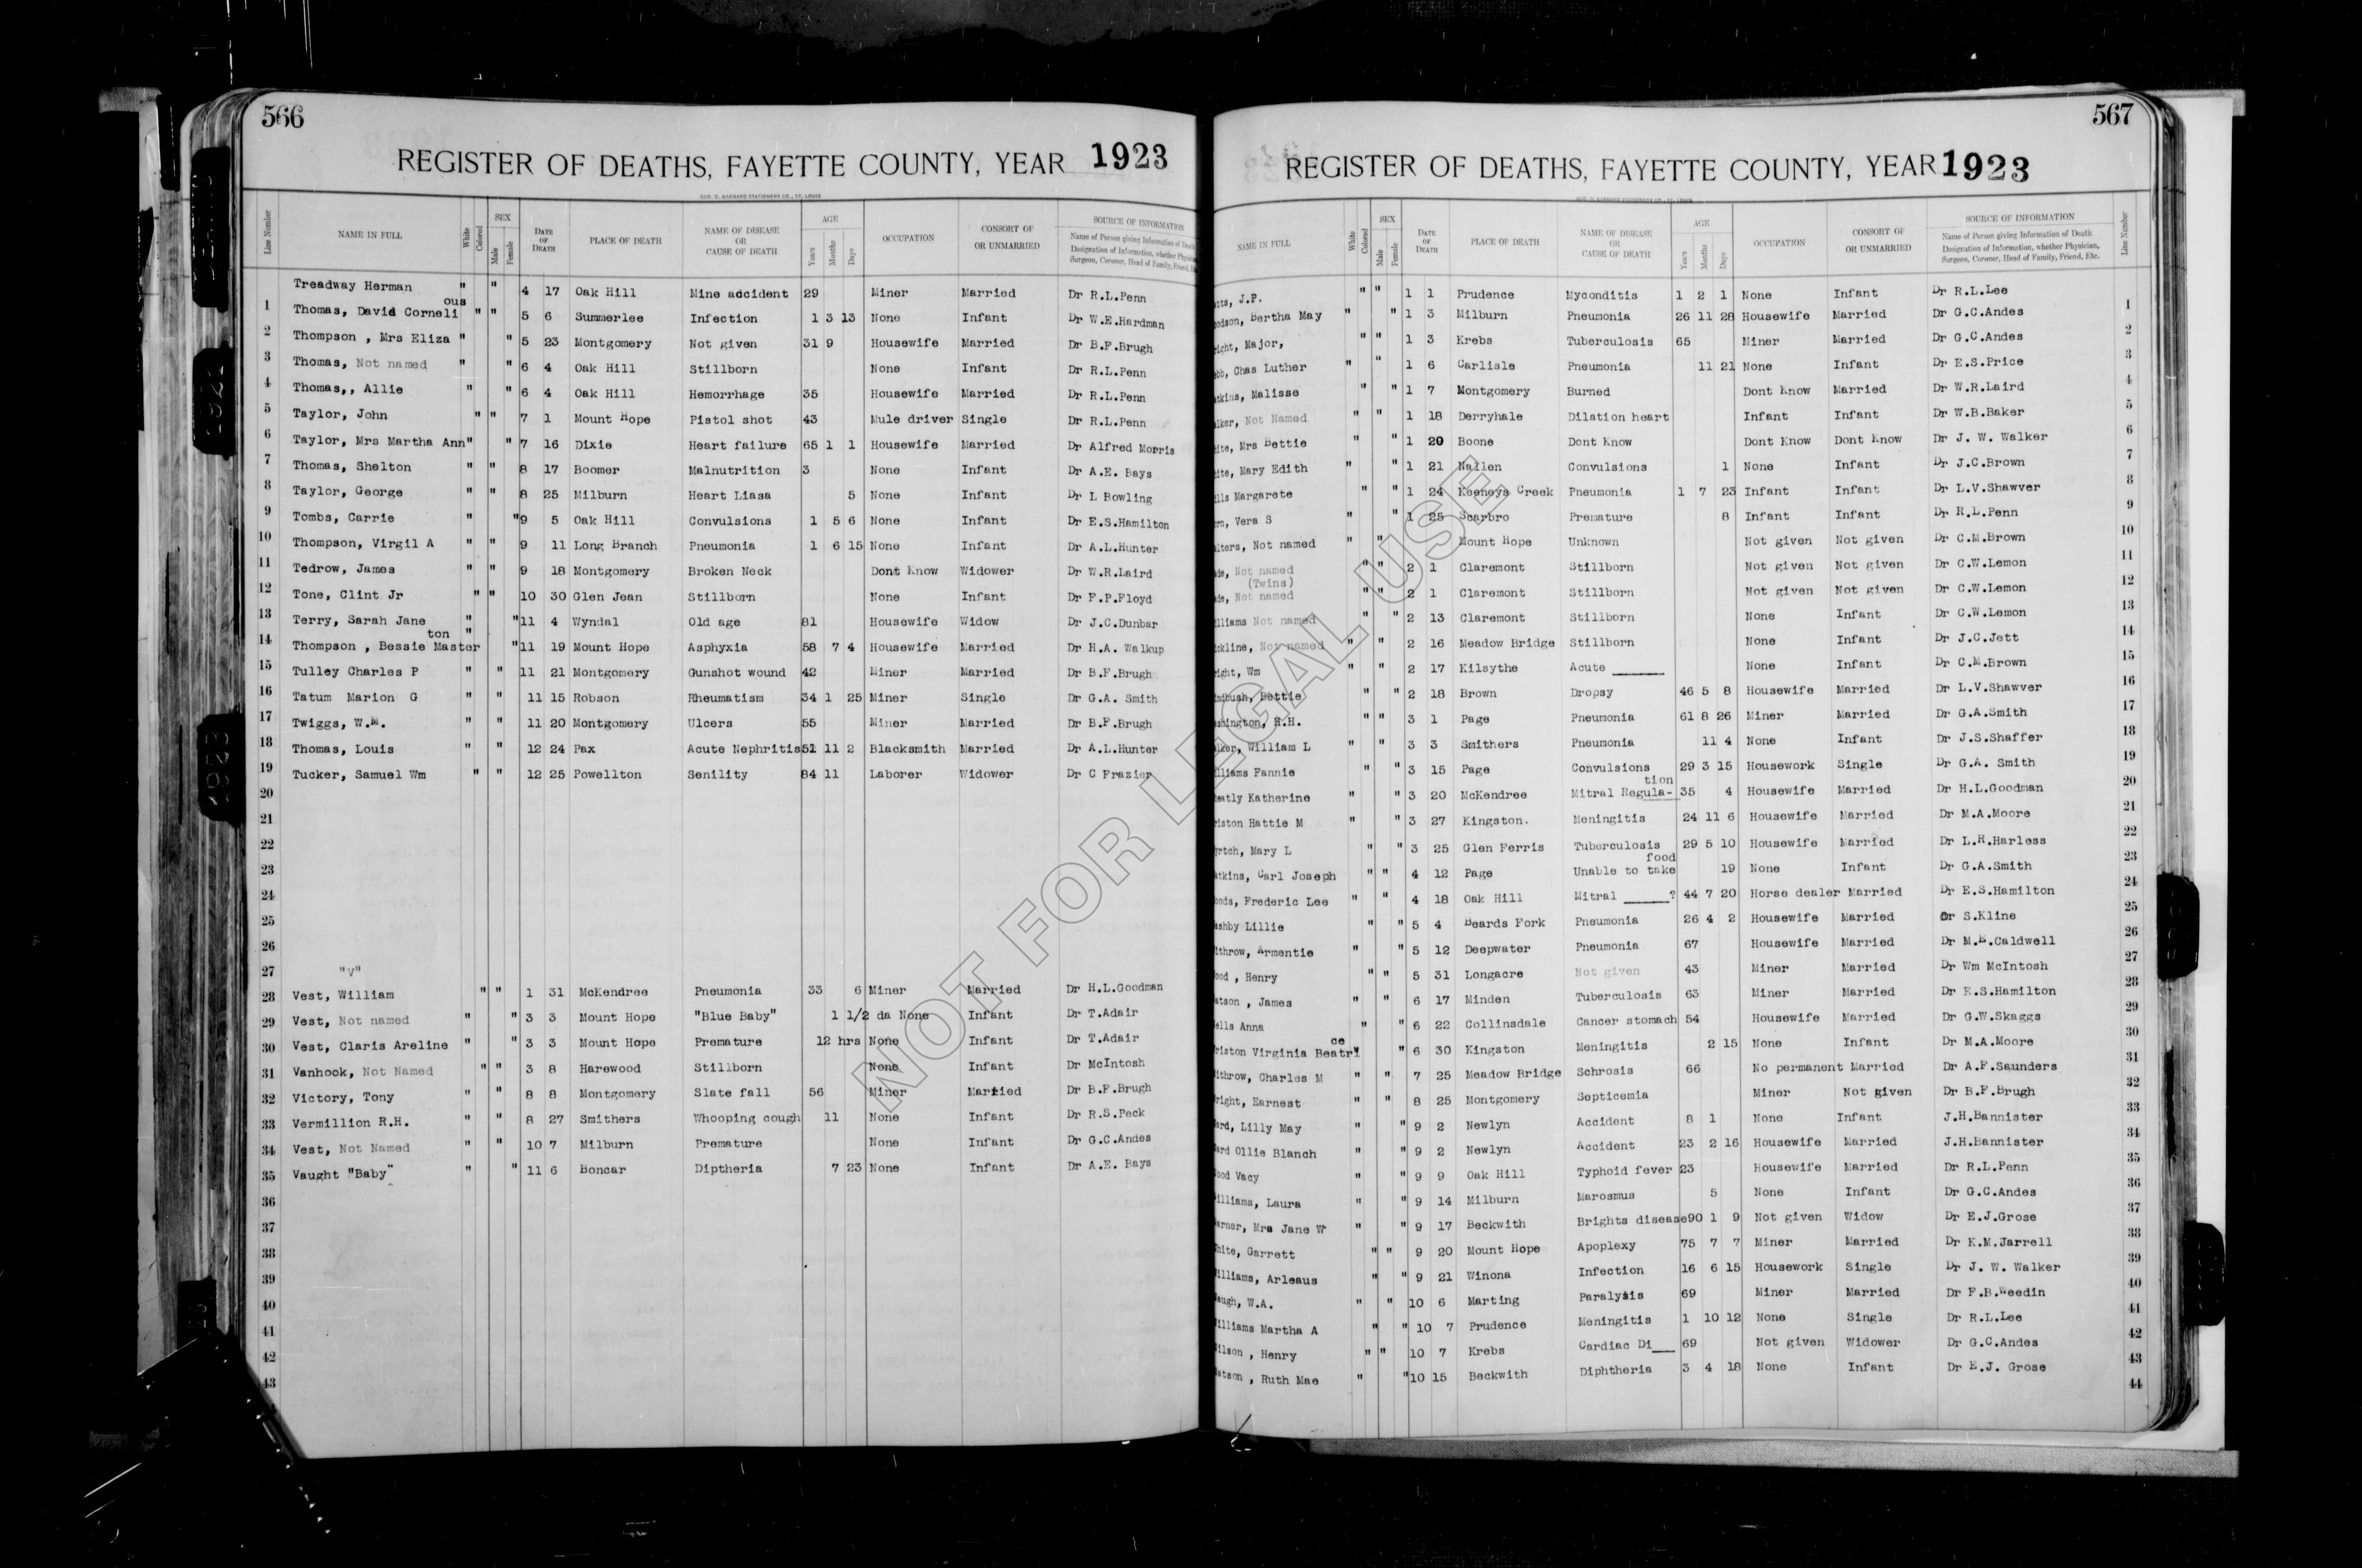 566
REGISTER OF DEATHS, FAYETTE COUNTY, YEAR 1923
GEO. D. BARNARD STATIONERY CO., ST. LOUIS
Line Number NAME IN FULL White Colored SEX Male Female DATE OF DEATH PLACE OF DEATH NAME OF DISEASE OR CAUSE OF DEATH AGE Years Months Days OCCUPATION CONSORT OF OR UNMARRIED SOURCE OF INFORMATION
Name of Person giving Information of Death
Designation of Information, whether Physician,
Surgeon, Coroner, Head of Family, Friend,
Treadway Herman " " 4 17 Oak Hill Mine accident 29 Miner Married Dr R.L.Penn
ous
1 Thomas, David Corneli " " 5 6 Summerlee Infection 1 3 13 None Infant Dr W.E.Hardman
2 Thompson , Mrs Eliza " " 5 23 Montgomery Not given 31 9 Housewife Married Dr B.F.Brugh
3 Thomas, Not named " " 6 4 Oak Hill Stillborn None Infant Dr R.L.Penn
4 Thomas,, Allie " " 6 4 Oak Hill Hemorrhage 35 Housewife Married Dr R.L.Penn
5 Taylor, John " " 7 1 Mount Hope Pistol shot 43 Mule driver Single Dr R.L.Penn
6 Taylor, Mrs Martha Ann" " 7 16 Dixie Heart failure 65 1 1 Housewife Married Dr Alfred Morris
7 Thomas, Shelton " " 8 17 Boomer Malnutrition 3 None Infant Dr A.E. Bays
8 Taylor, George " " 8 25 Milburn Heart Liasa 5 None Infant Dr L Bowling
9 Tombs, Carrie " " 9 5 Oak Hill Convulsions 1 5 6 None Infant Dr E.S.Hamilton
10 Thompson, Virgil A " " 9 11 Long Branch Pneumonia 1 6 15 None Infant Dr A.L.Hunter
11 Tedrow, James " " 9 18 Montgomery Broken Neck Dont Know Widower Dr W.R.Laird
12 Tone, Clint Jr " " 10 30 Glen Jean Stillborn None Infant Dr F.P.Floyd
13 Terry, Sarah Jane " " 11 4 Wyndal Old age 81 Housewife Widow Dr J.C.Dunbar
ton
14 Thompson , Bessie Master " 11 19 Mount Hope Asphyxia 58 7 4 Housewife Married Dr H.A. Walkup
15 Tulley Charles P " " 11 21 Montgomery Gunshot wound 42 Miner Married Dr B.F.Brugh
16 Tatum Marion G " " 11 15 Robson Rheumatism 34 1 25 Miner Single Dr G.A. Smith
17 Twiggs, W.M. " " 11 20 Montgomery Ulcers 55 Miner Married Dr B.F.Brugh
18 Thomas, Louis " " 12 24 Pax Acute Nephritis 51 11 2 Blacksmith Married Dr A.L.Hunter
19 Tucker, Samuel Wm " " 12 25 Powellton Senility 84 11 Laborer Widower Dr C Frazier
20
21
22
23
24
25
26
27 "V"
28 Vest, William " " 1 31 McKendree Pneumonia 33 6 Miner Married Dr H.L.Goodman
29 Vest, Not named " " 3 3 Mount Hope "Blue Baby" 1 1/2 da None Infant Dr T.Adair
30 Vest, Claris Areline " " 3 3 Mount Hope Premature 12 hrs None Infant Dr T.Adair
31 Vanhook, Not Named " " 3 8 Harewood Stillborn None Infant Dr McIntosh
32 Victory, Tony " " 8 8 Montgomery Slate fall 56 Miner Married Dr B.F.Brugh
33 Vermillion R.H. " " 8 27 Smithers Whooping cough 11 None Infant Dr R.S.Peck
34 Vest, Not Named " " 10 7 Milburn Premature None Infant Dr G.C.Andes
35 Vaught "Baby" " " 11 6 Boncar Diptheria 7 23 None Infant Dr A.E. Bays
36
37
38
39
40
41
42
43
567
REGISTER OF DEATHS, FAYETTE COUNTY, YEAR 1923
NAME IN FULL White Colored SEX Male Female DATE OF DEATH PLACE OF DEATH NAME OF DISEASE OR CAUSE OF DEATH AGE Years Months Days OCCUPATION CONSORT OF OR UNMARRIED SOURCE OF INFORMATION Line Number
Name of Person giving Information of Death
Designation of Information, whether Physician,
Surgeon, Coroner, Head of Family, Friend, Etc.
J.P. " " 1 1 Prudence Myconditis 1 2 1 None Infant Dr R.L.Lee 1
Bertha May " " 1 3 Milburn Pneumonia 26 11 28 Housewife Married Dr G.C.Andes 2
Major, " " 1 3 Krebs Tuberculosis 65 Miner Married Dr G.C.Andes 3
Chas Luther " " 1 6 Carlisle Pneumonia 11 21 None Infant Dr E.S.Price 4
Malisse " " 1 7 Montgomery Burned Dont Know Married Dr W.R.Laird 5
Not Named " " 1 18 Derryhale Dilation heart Infant Infant Dr W.B.Baker 6
Mrs Bettie " " 1 20 Boone Dont Know Dont Know Dont Know Dr J. W. Walker 7
Mary Edith " " 1 21 Nallen Convulsions 1 None Infant Dr J.C.Brown 8
Margarete " " 1 24 Keeneys Creek Pneumonia 1 7 23 Infant Infant Dr L.V.Shawver 9
Vera S " " 1 25 Scarbro Premature 8 Infant Infant Dr R.L.Penn 10
Not named " " Mount Hope Unknown Not given Not given Dr C.M.Brown 11
Not named " " 2 1 Claremont Stillborn Not given Not given Dr C.W.Lemon 12
(Twins)
Not named " " 2 1 Claremont Stillborn Not given Not given Dr C.W.Lemon 13
Not named " " 2 13 Claremont Stillborn None Infant Dr C.W.Lemon 14
Not named " " 2 16 Meadow Bridge Stillborn None Infant Dr J.C.Jett 15
Wm " " 2 17 Kilsythe Acute ______ None Infant Dr C.M.Brown 16
Bettie " " 2 18 Brown Dropsy 46 5 8 Housewife Married Dr L.V.Shawver 17
R.H. " " 3 1 Page Pneumonia 61 8 26 Miner Married Dr G.A.Smith 18
William L " " 3 3 Smithers Pneumonia 11 4 None Infant Dr J.S.Shaffer 19
Fannie " " 3 15 Page Convulsions 29 3 15 Housework Single Dr G.A. Smith 20
tion
Katherine " " 3 20 McKendree Mitral Regula- 35 4 Housewife Married Dr H.L.Goodman 21
Hattie M " " 3 27 Kingston. Meningitis 24 11 6 Housewife Married Dr M.A.Moore 22
Mary L " " 3 25 Glen Ferris Tuberculosis 29 5 10 Housewife Married Dr L.R.Harless 23
food
Carl Joseph " " 4 12 Page Unable to take 19 None Infant Dr G.A.Smith 24
Frederic Lee " " 4 18 Oak Hill Mitral _____? 44 7 20 Horse dealer Married Dr E.S.Hamilton 25
Lillie " " 5 4 Beards Fork Pneumonia 26 4 2 Housewife Married Dr S.Kline 26
Armentie " " 5 12 Deepwater Pneumonia 67 Housewife Married Dr M.B.Caldwell 27
Henry " " 5 31 Longacre Not given 43 Miner Married Dr Wm McIntosh 28
James " " 6 17 Minden Tuberculosis 63 Miner Married Dr E.S.Hamilton 29
Anna " " 6 22 Collinsdale Cancer stomach 54 Housewife Married Dr G.W.Skaggs 30
ce
Virginia Beatri " " 6 30 Kingston Meningitis 2 15 None Infant Dr M.A.Moore 31
Charles M " " 7 25 Meadow Bridge Schrosis 66 No permanent Married Dr A.F.Saunders 32
Earnest " " 8 25 Montgomery Septicemia Miner Not given Dr B.F.Brugh 33
Lilly May " " 9 2 Newlyn Accident 8 1 None Infant J.H.Bannister 34
Ollie Blanch " " 9 2 Newlyn Accident 23 2 16 Housewife Married J.H.Bannister 35
Vacy " " 9 9 Oak Hill Typhoid fever 23 Housewife Married Dr R.L.Penn 36
Laura " " 9 14 Milburn Marosmus 5 None Infant Dr G.C.Andes 37
Mrs Jane W " " 9 17 Beckwith Brights disease 90 1 9 Not given Widow Dr E.J.Grose 38
Garrett " " 9 20 Mount Hope Apoplexy 75 7 7 Miner Married Dr K.M.Jarrell 39
Arleaus " " 9 21 Winona Infection 16 6 15 Housework Single Dr J. W. Walker 40
W.A. " " 10 6 Marting Paralysis 69 Miner Married Dr F.B.Weedin 41
Martha A " " 10 7 Prudence Meningitis 1 10 12 None Single Dr R.L.Lee 42
Henry " " 10 7 Krebs Cardiac Di___ 69 Not given Widower Dr G.C.Andes 43
Ruth Mae " " 10 15 Beckwith Diphtheria 3 4 18 None Infant Dr E.J. Grose 44
NOT FOR LEGAL USE